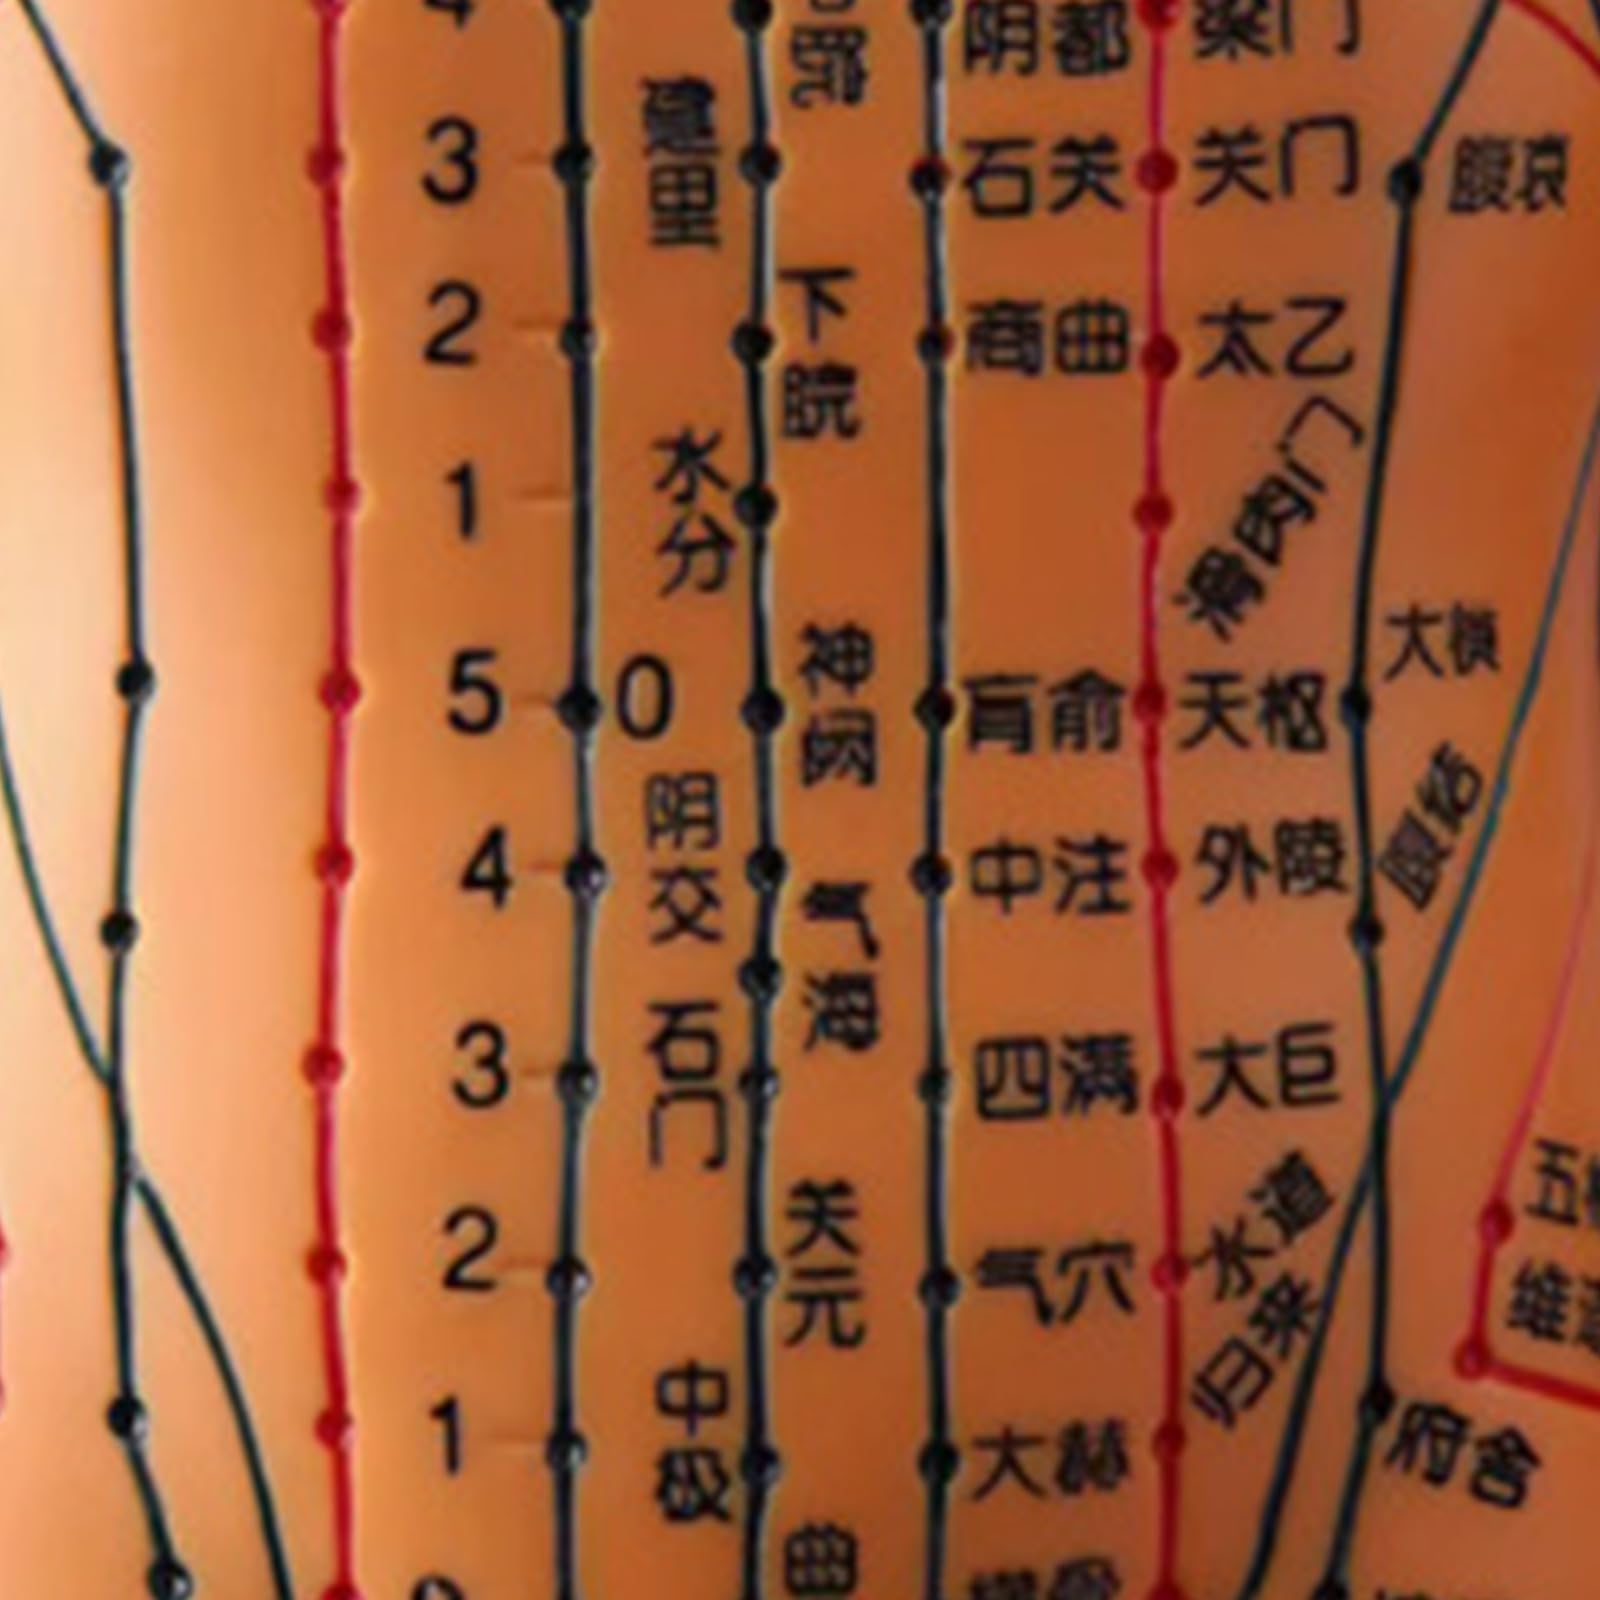 阴都 梁门
3 建里 石关 关门 腹哀
2 下脘 商曲 太乙
1 水分 滑肉门
5 0 神阙 肓俞 天枢 大横
4 阴交 中注 外陵 腹结
气海
3 石门 四满 大巨
2 关元 气穴 水道
归来
1 中极 大赫 府舍
曲